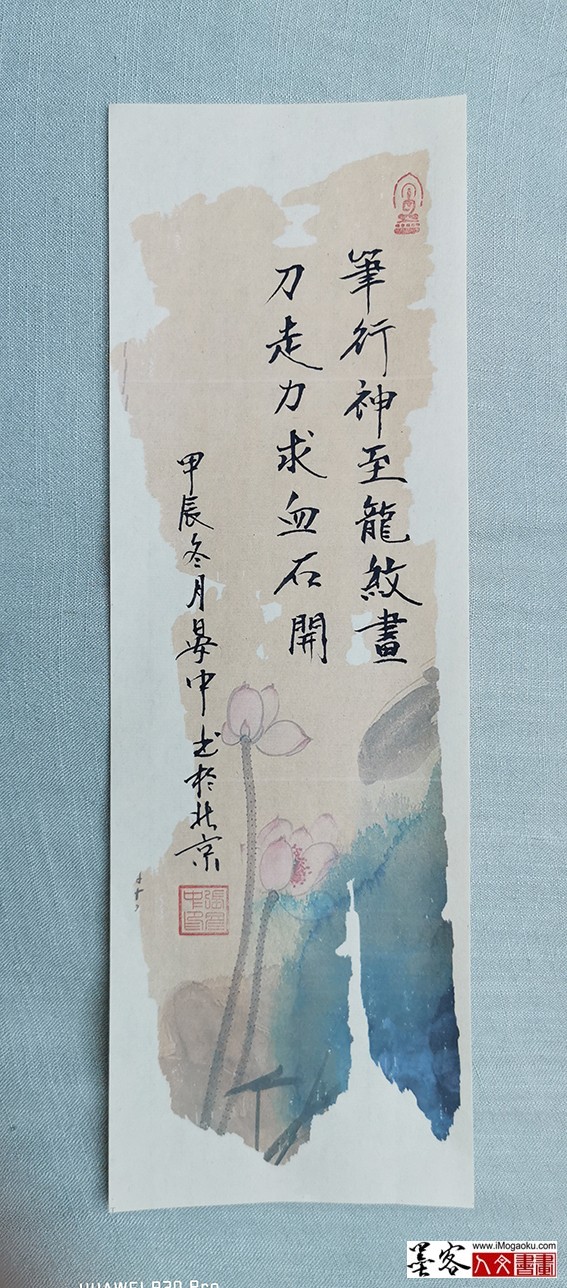 筆行神至龍紋畫
刀走力求血石開
甲辰冬月晏中书於北京
www.iMogaoku.com
墨客人文書畫
HUAWEI P30 Pro